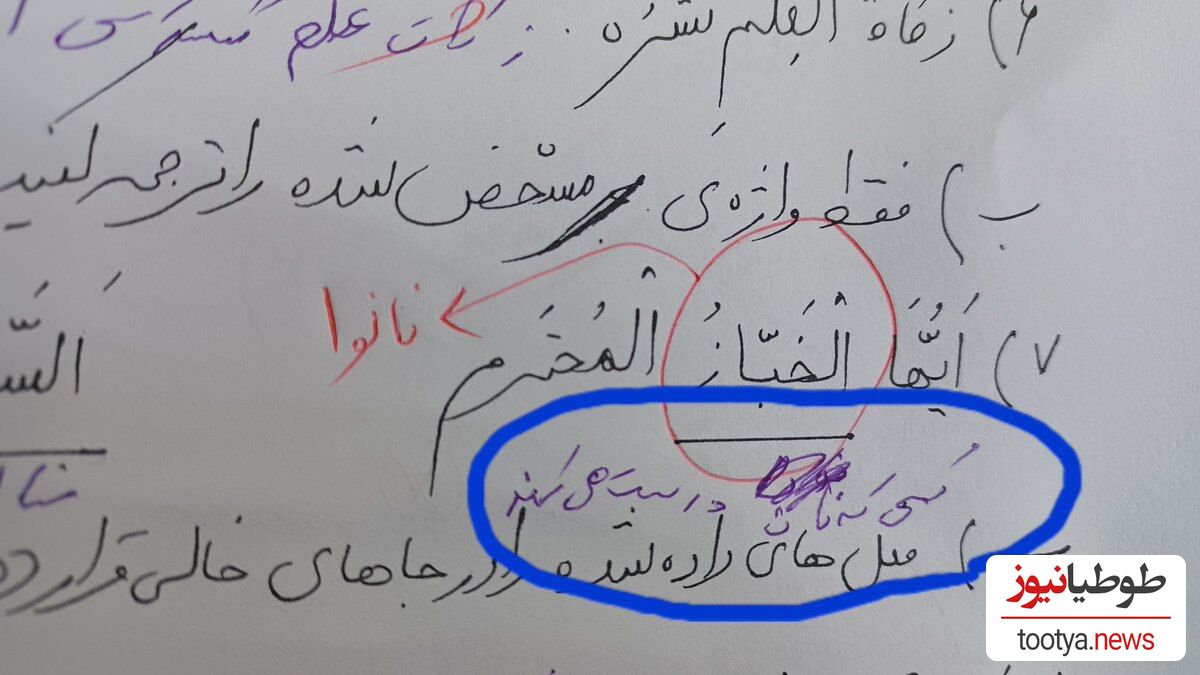 ۶) زکاةُ العِلمِ نَشرُهُ . زکات علم
ب) فقط واژه‌ی مشخّص شده را ترجمه کنید
۷) اَیُّهَا الْخَبّازُ الْمُحْتَرَم
نانوا
السَّ
کسی که نان درست می کند
) فعل های داده شده را در جاهای خالی قرار ده
طوطیانیوز
tootya.news